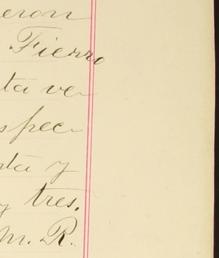 eron
Fierro
ta ve
spec
ta y
y tres.
M. R.